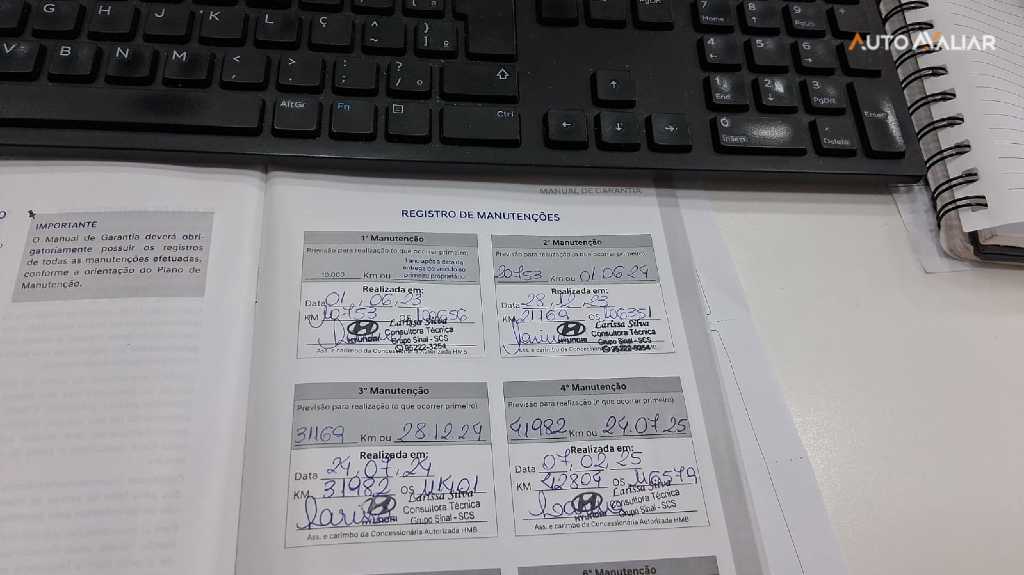 AUTOAVALIAR
G H J K L Ç
V B N M
AltGr Fn Ctrl
7 Home 8 9 PgUp
4 5 6
1 End 2 3 PgDn
0 Insert Delete Enter
MANUAL DE GARANTIA
IMPORTANTE
O Manual de Garantia deverá obri-
gatoriamente possuir os registros
de todas as manutenções efetuadas,
conforme a orientação do Plano de
Manutenção.
REGISTRO DE MANUTENÇÕES
1ª Manutenção
Previsão para realização (o que ocorrer primeiro)
10.000 Km ou 1 ano após a data da
entrega do veículo ao
primeiro proprietário
Realizada em:
Data 01, 06, 23
KM 10753 OS 106656
Larissa Silva
Consultora Técnica
Grupo Sinal - SCS
Hyundai
Ass. e carimbo da Concessionária Autorizada HMB
2ª Manutenção
Previsão para realização (o que ocorrer primeiro)
20753 Km ou 01.06.24
Realizada em:
Data 28, 12, 23
KM 21169 OS
Larissa Silva
Consultora Técnica
Grupo Sinal - SCS
Hyundai
Ass. e carimbo da
3ª Manutenção
Previsão para realização (o que ocorrer primeiro)
31169 Km ou 28.12.24
Realizada em:
Data 24, 07, 24
KM 31982 OS
Larissa Silva
Consultora Técnica
Grupo Sinal - SCS
Hyundai
Ass. e carimbo da Concessionária Autorizada HMB
4ª Manutenção
Previsão para realização (o que ocorrer primeiro)
41982 Km ou 24.07.25
Realizada em:
Data 07, 02, 25
KM 42804 OS 116579
Larissa Silva
Consultora Técnica
Grupo Sinal - SCS
Hyundai
Ass. e carimbo da Concessionária Autorizada HMB
6ª Manutenção